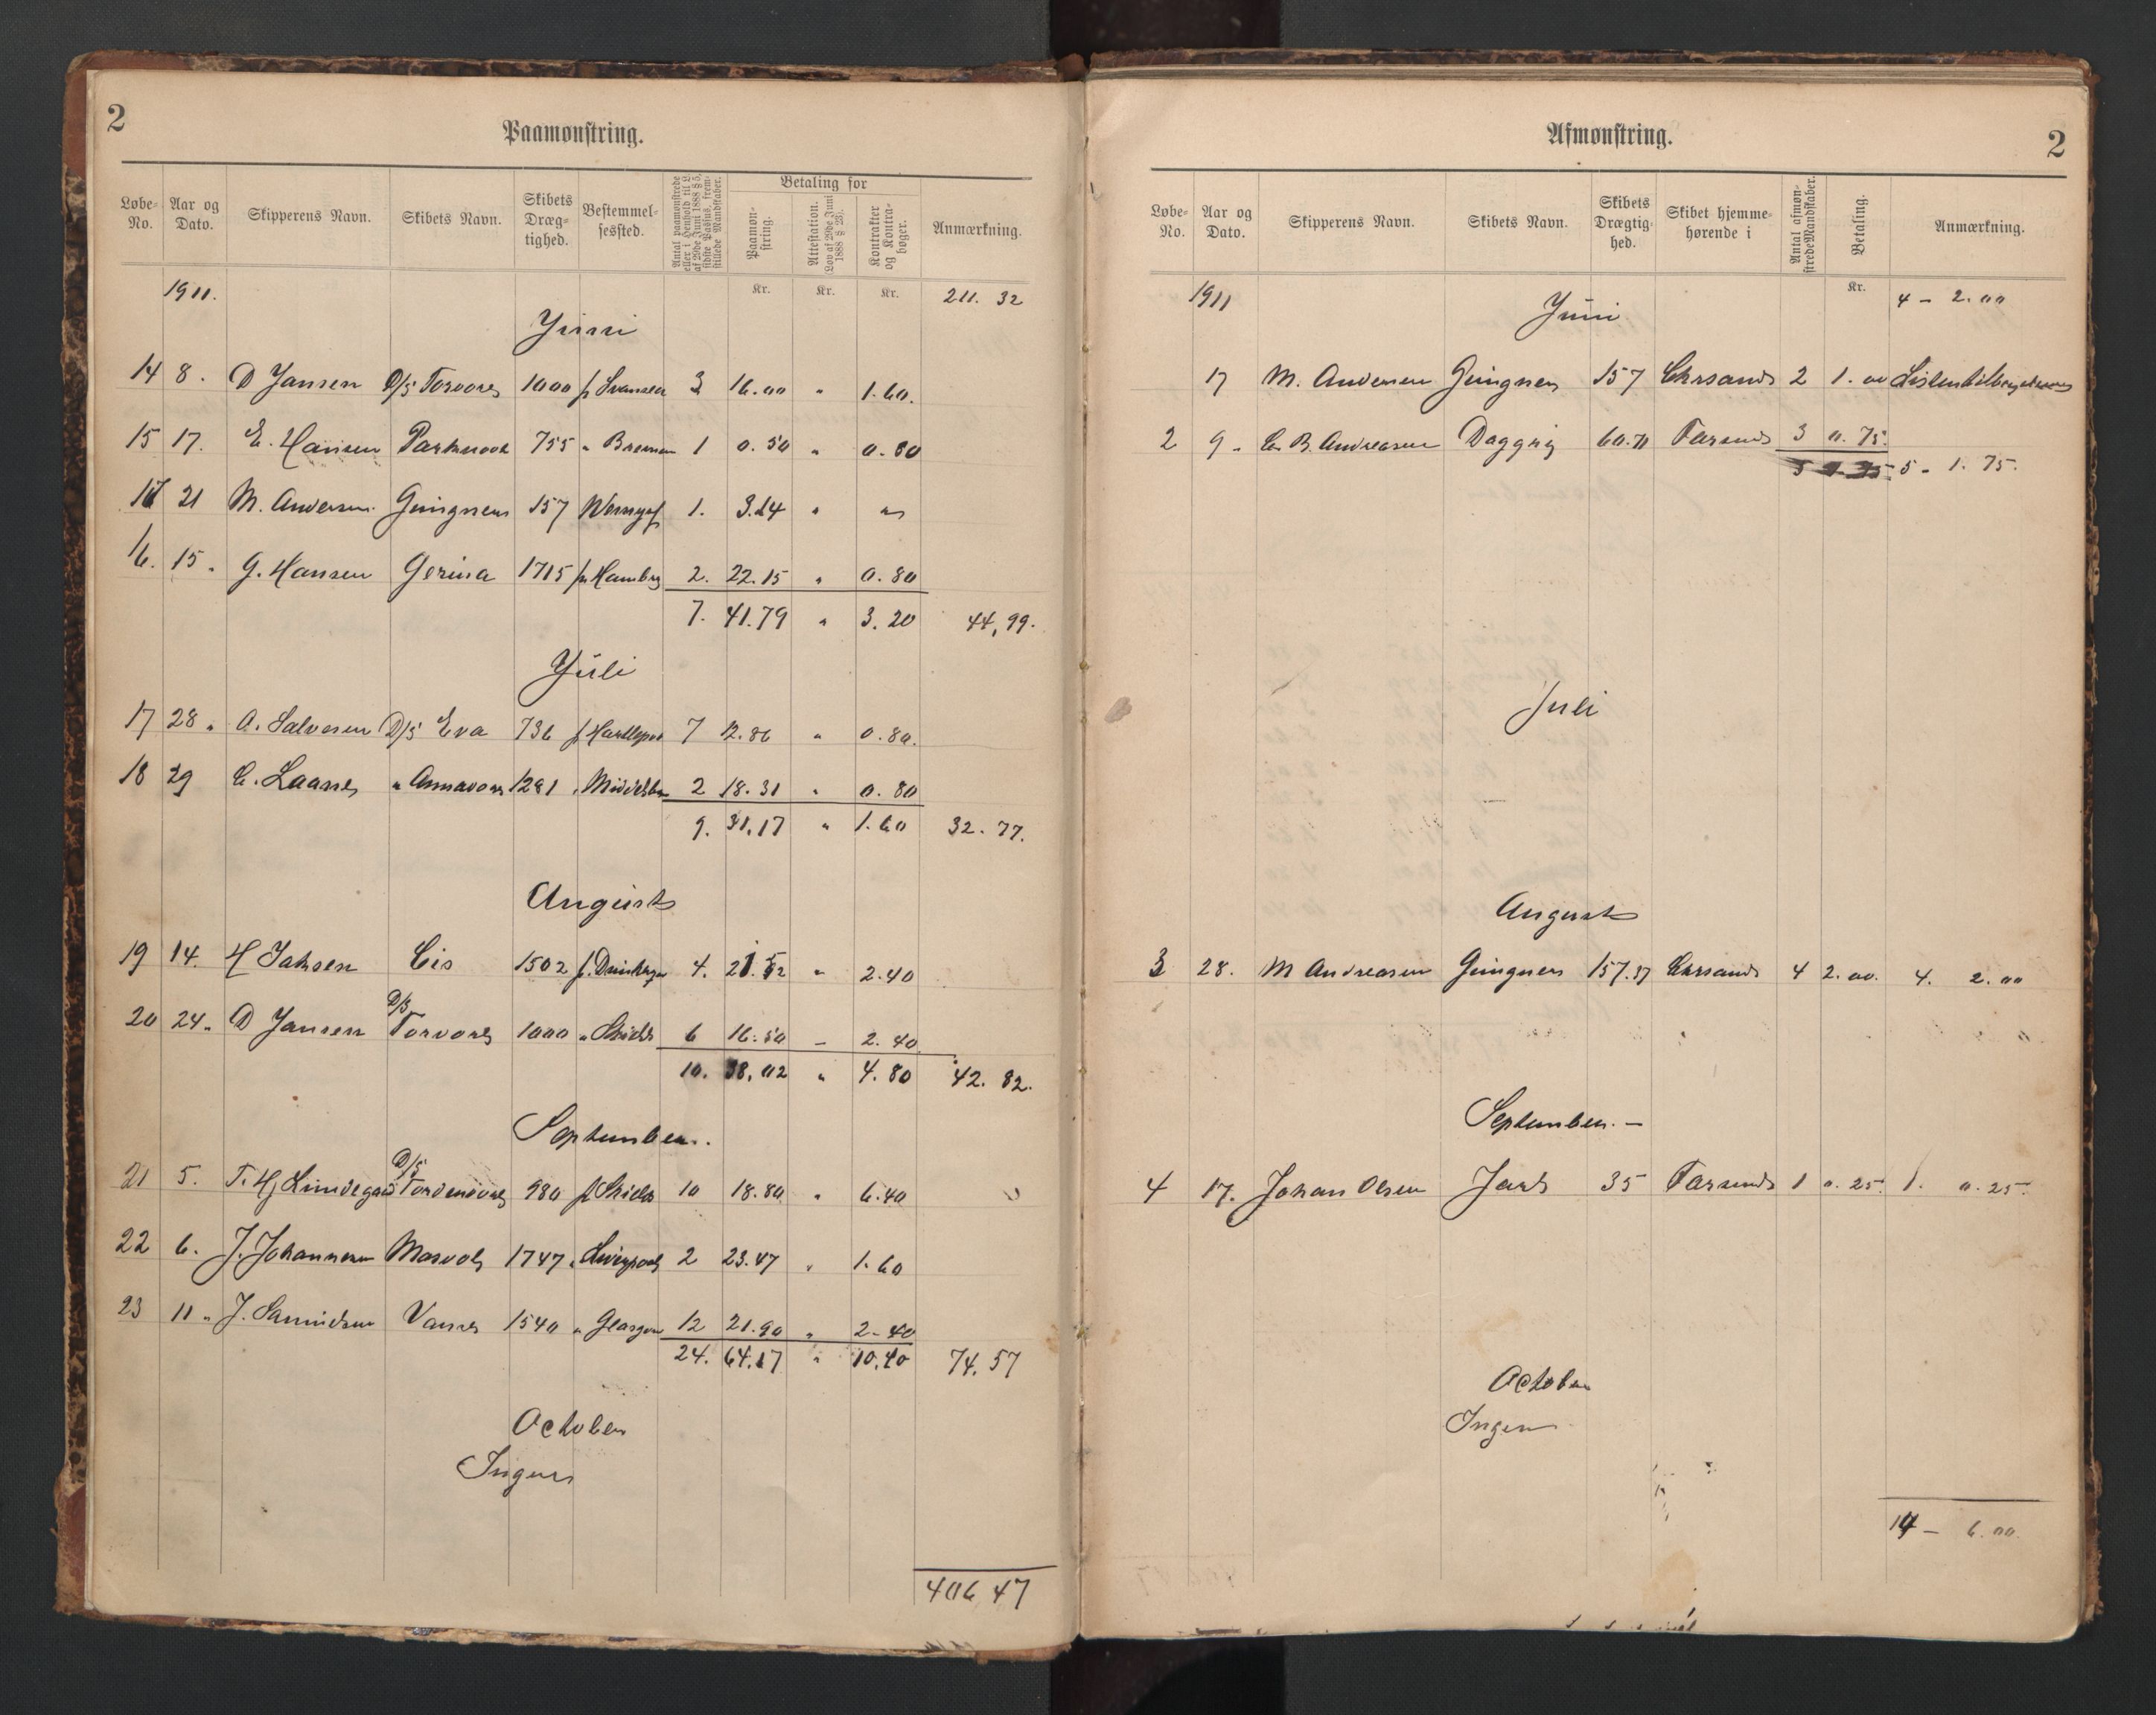 2
Paamønstring.
Løbe-No. | Aar og Dato. | Skipperens Navn. | Skibets Navn. | Skibets Dræg-tighed. | Bestemmel-sessted. | Antal paamønstrede eller i Henhold til L. af 29de Juni 1888 § 5, sidste Passus, frem-stillede Mandskaber. | Betaling for | Paamøn-string. | Attestation. Lov af 29de Juni 1888 § 23). | Kontrakter og Kontra-bøger. | Anmærkning.
1911. Kr. Kr. Kr. 211. 32
Juni
14 8. D Jansen D/S Torvore 1000 f Svansea 3 16.00 " 1.60.
15 17. E. Hansen 755 " Bremen 1 0.50 " 0.80
21 M. Andersen Gungner 157 1. 3.14 " "
16. 15. G. Hansen Gerina 1715 f Hambrg 2. 22.15 " 0.80
7. 41.79 " 3.20 44,99.
Juli
17 28 " A. Salvesen D/S Eva 736 f Hartlepool 7 12.86 " 0.80.
18 29 C. Laane " 1281 " Middelsbro 2 18.31 " 0.80
9. 31,17 " 1.60 32.77.
August
19 14. H Cis 1502 f. 4. 21.52 " 2.40
20 24 " D Jansen D/S Torvore 1000 " Shields 6 16.50 – 2.40
10. 38,02 " 4.80 42.82.
September.
21 5. T. Hj Lindegaard D/S Tordenvore 980 f Shields 10 18.80 " 6.40
22 6. J. Johannesen 1747 " Liverpool 2 23.47 " 1.60
23 11 " J. Vanse 1540 " Glasgow 12 21.90 " 2-40
24. 64.17 " 10.40 74.57
October
Ingen
406 47
Afmønstring.
2
Løbe-No. | Aar og Dato. | Skipperens Navn. | Skibets Navn. | Skibets Drægtig-hed. | Skibet hjemme-hørende i | Antal afmøn-strede Mandskaber. | Betaling. | Anmærkning.
1911 Kr. 4 – 2.00
Juni
17 M. Andersen Gungner 157 Chrsand 2 1.00
2 9 " C. B. Andreasen Daggry 60.71 Farsund 3 0.75.
5 – 1.75.
Juli
—
August
3 28. M Andreasen Gungner 157.37 Chrsand 4 2.00. 4. 2.00
September. –
4 17. Johan Olsen Jarl 35 Farsund 1 0.25. 1. 0.25.
October
Ingen
14 – 6.00